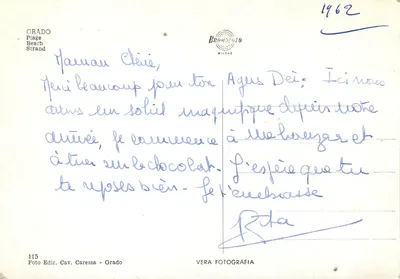 1962
GRADO
Plage
Beach
Strand
BROMOFOTO
MILANO
Maman chérie,
Merci beaucoup pour ton Agnus Dei; Ici nous
dans un soleil magnifique depuis notre
arrivée, je commence à me bronzer et
à tirer sur le chocolat. J'espère que tu
te reposes bien - Je t'embrasse
Rita
115
Foto Ediz. Cav. Carema - Grado
VERA FOTOGRAFIA